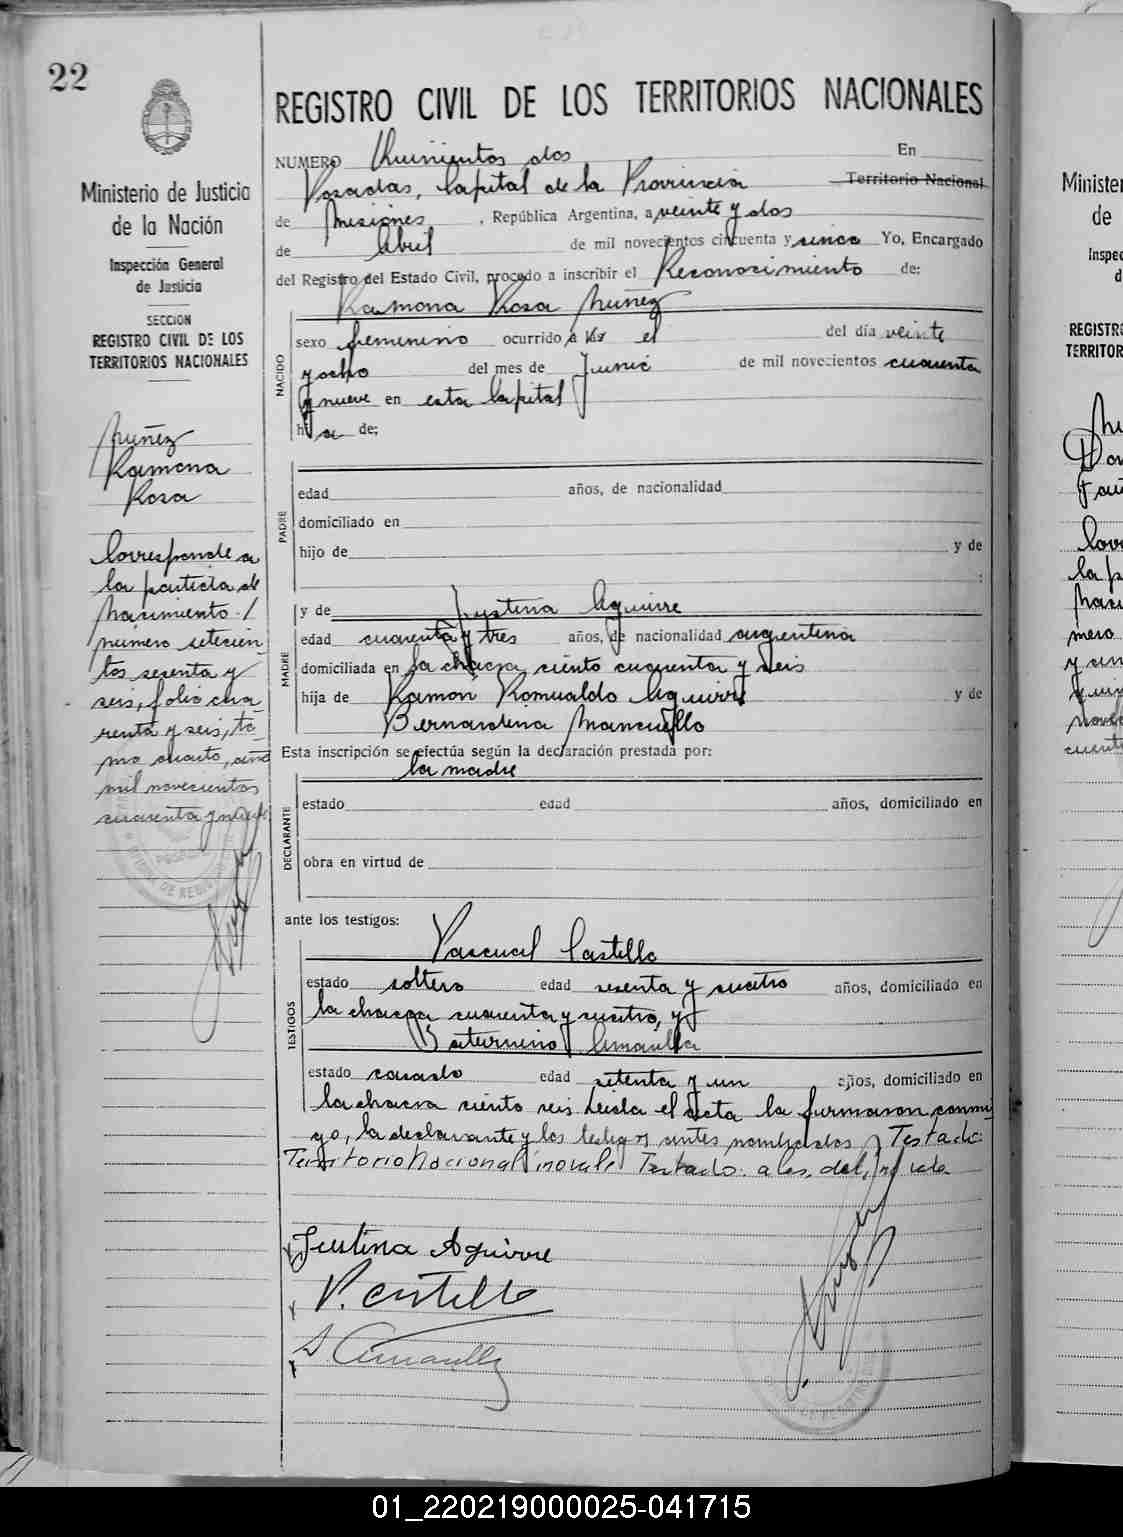 22
Ministerio de Justicia
de la Nación
Inspección General
de Justicia
SECCION
REGISTRO CIVIL DE LOS
TERRITORIOS NACIONALES
Nuñez
Ramona
Rosa
Corresponde a
la partida de
Nacimiento /
número setecien-
tos sesenta y
seis, folio cua-
renta y seis, to-
mo cuarto, año
mil novecientos
cuarenta y nueve
REGISTRO CIVIL DE LOS TERRITORIOS NACIONALES
NUMERO Quinientos dos En
Posadas, Capital de la Provincia Territorio Nacional
de Misiones, República Argentina, a veinte y dos
de Abril de mil novecientos cincuenta y cinco Yo, Encargado
del Registro del Estado Civil, procedo a inscribir el Reconocimiento de:
Ramona Rosa Nuñez
NACIDO
sexo femenino ocurrido a las el del día veinte
y ocho del mes de Junio de mil novecientos cuarenta
y nueve en esta Capital
hija de:
PADRE
edad años, de nacionalidad
domiciliado en
hijo de y de
:
MADRE
y de Justina Aguirre
edad cuarenta y tres años, de nacionalidad argentina
domiciliada en la chacra ciento cuarenta y seis
hija de Ramon Romualdo Aguirre y de
Bernardina Mancuello
Esta inscripción se efectúa según la declaración prestada por:
la madre
DECLARANTE
estado edad años, domiciliado en
obra en virtud de
ante los testigos:
TESTIGOS
Pascual Castello
estado soltero edad sesenta y cuatro años, domiciliado en
la chacra cuarenta y cuatro, y
Saturnino
estado casado edad setenta y un años, domiciliado en
la chacra ciento seis Leida el acta la firmaron conmi-
go, la declarante y los testigos antes nombrados Testado:
Territorio Nacional no vale Testado: a las, del, no vale
Justina Aguirre
P. Castello
S
Minister
de
Inspec
d
REGISTRO
TERRITOR
01_220219000025-041715